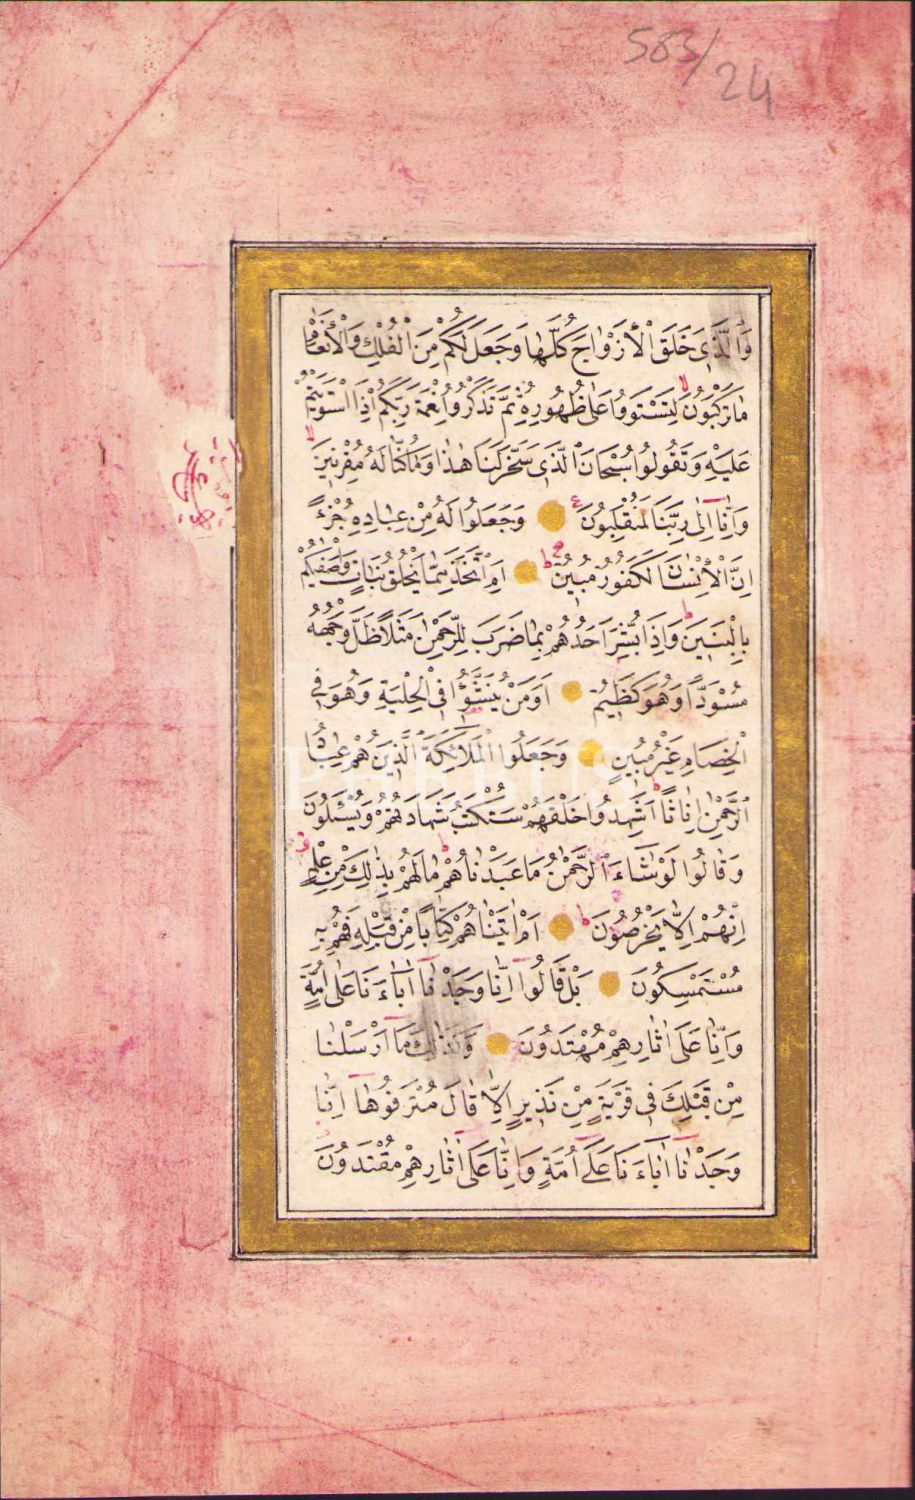 503/24
وَالَّذِى خَلَقَ الْاَزْوٰاجَ كُلَّهٰا وَجَعَلَ لَكُمْ مِنَ الْفُلْكِ وَالْاَنْعٰامِ
مٰا تَرْكَبُونَ لِتَسْتَوُوا عَلٰى ظُهُورِهِ ثُمَّ تَذْكُرُوا نِعْمَةَ رَبِّكُمْ اِذَا اسْتَوَيْتُمْ
عَلَيْهِ وَتَقُولُوا سُبْحَانَ الَّذِى سَخَّرَ لَنَا هٰذٰا وَمٰا كُنّٰا لَهُ مُقْرِنِينَ
وَاِنّٰا اِلٰى رَبِّنَا لَمُنْقَلِبُونَ وَجَعَلُوا لَهُ مِنْ عِبٰادِهِ جُزْءً
اِنَّ الْاِنْسٰانَ لَكَفُورٌ مُبِينٌ اَمِ اتَّخَذَ مِمّٰا يَخْلُقُ بَنٰاتٍ وَاَصْفٰيكُمْ
بِالْبَنِينَ وَاِذَا بُشِّرَ اَحَدُهُمْ بِمٰا ضَرَبَ لِلرَّحْمٰنِ مَثَلًا ظَلَّ وَجْهُهُ
مُسْوَدًّا وَهُوَ كَظِيمٌ اَوَمَنْ يُنَشَّؤُا فِى الْحِلْيَةِ وَهُوَ فِى
الْخِصَامِ غَيْرُ مُبِينٍ وَجَعَلُوا الْمَلَائِكَةَ الَّذِينَ هُمْ عِبٰادُ
الرَّحْمٰنِ اِنٰاثًا اَشَهِدُوا خَلْقَهُمْ سَتُكْتَبُ شَهَادَتُهُمْ وَيُسْئَلُونَ
وَقٰالُوا لَوْ شٰاءَ الرَّحْمٰنُ مَا عَبَدْنٰاهُمْ مٰا لَهُمْ بِذٰلِكَ مِنْ عِلْمٍ
اِنْهُمْ اِلّٰا يَخْرُصُونَ اَمْ اٰتَيْنٰاهُمْ كِتٰابًا مِنْ قَبْلِهِ فَهُمْ بِهِ
مُسْتَمْسِكُونَ بَلْ قَالُوا اِنّٰا وَجَدْنٰا اٰبٰاءَنَا عَلٰى اُمَّةٍ
وَاِنّٰا عَلٰى اٰثٰارِهِمْ مُهْتَدُونَ وَكَذٰلِكَ مٰا اَرْسَلْنٰا
مِنْ قَبْلِكَ فِى قَرْيَةٍ مِنْ نَذِيرٍ اِلّٰا قٰالَ مُتْرَفُوهٰا اِنّٰا
وَجَدْنٰا اٰبٰاءَنَا عَلٰى اُمَّةٍ وَاِنّٰا عَلٰى اٰثٰارِهِمْ مُقْتَدُونَ